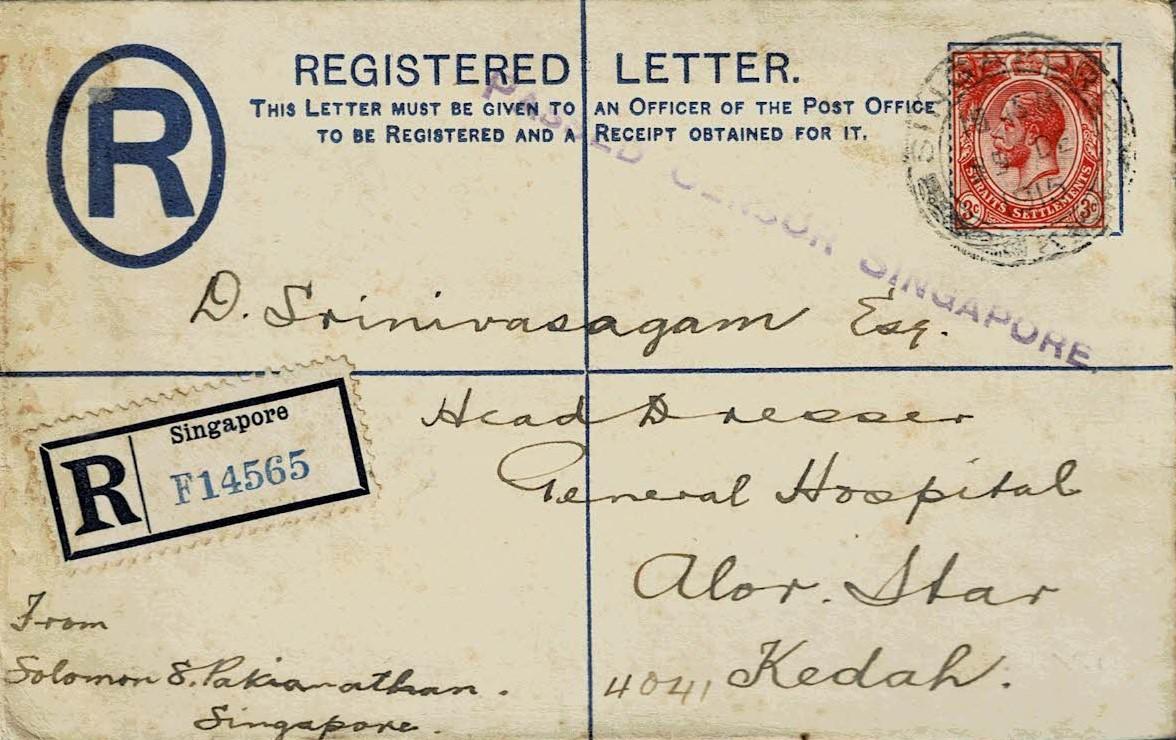 R
REGISTERED LETTER.
THIS LETTER MUST BE GIVEN TO AN OFFICER OF THE POST OFFICE
TO BE REGISTERED AND A RECEIPT OBTAINED FOR IT.
PASSED CENSOR SINGAPORE
STRAITS SETTLEMENTS
3c 3c
D. Srinivasagam Esq.
Head Dresser
General Hospital
Alor. Star
Kedah.
R
Singapore
F14565
From
Solomon S. Pakianathan.
Singapore.
4041